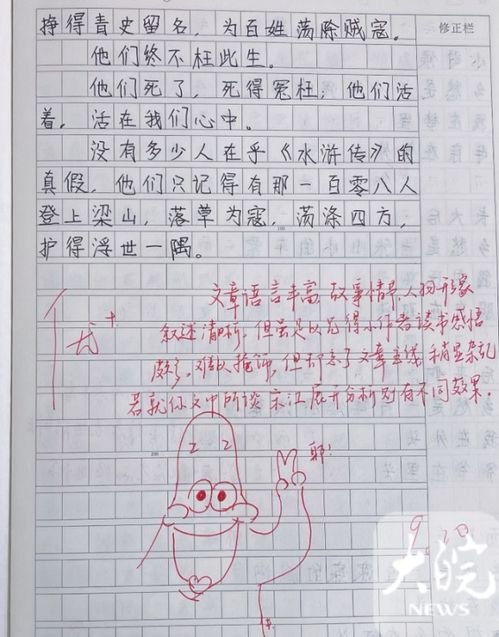 挣得青史留名，为百姓荡除贼寇。
修正栏
他们终不枉此生。
他们死了，死得冤枉，他们活
着，活在我们心中。
没有多少人在乎《水浒传》的
真假，他们只记得有那一百零八人
登上梁山，落草为寇，荡涤四方，
护得浮世一隅。
文章语言丰富，故事情节、人物形象
优+
叙述清晰，但虽足以见得小作者读书感悟
多，难以掩饰，但却忘了文章主线，稍显杂乱
若就你文中所谈宋江展开分析则有不同效果。
z z
耶！
9.20
大皖
NEWS